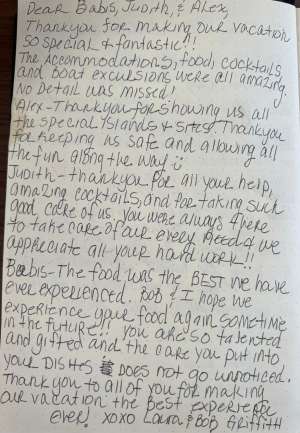 Dear Babis, Judith, & Alex,
Thankyou for making our vacation
so special & fantastic!!
The Accommodations, food, cocktails,
and boat excursions were all amazing.
No Detail was missed!
Alex-Thankyou for showing us all
the special Islands & sites. Thankyou
for keeping us safe and allowing all
the fun along the way
Judith-thankyou for all your help,
amazing cocktails, and for taking such
good care of us. you were always there
to take care of our every need & we
appreciate all your hard work!!
Babis-The food was the BEST we have
ever experienced. BOB & I hope we
experience your food again sometime
in the future!! You are so talented
and gifted and the care you put into
your DISHES DOES not go unnoticed.
Thank you to all of you for making
our vacation the best experience
ever! XOXO Laura & BOB Griffith